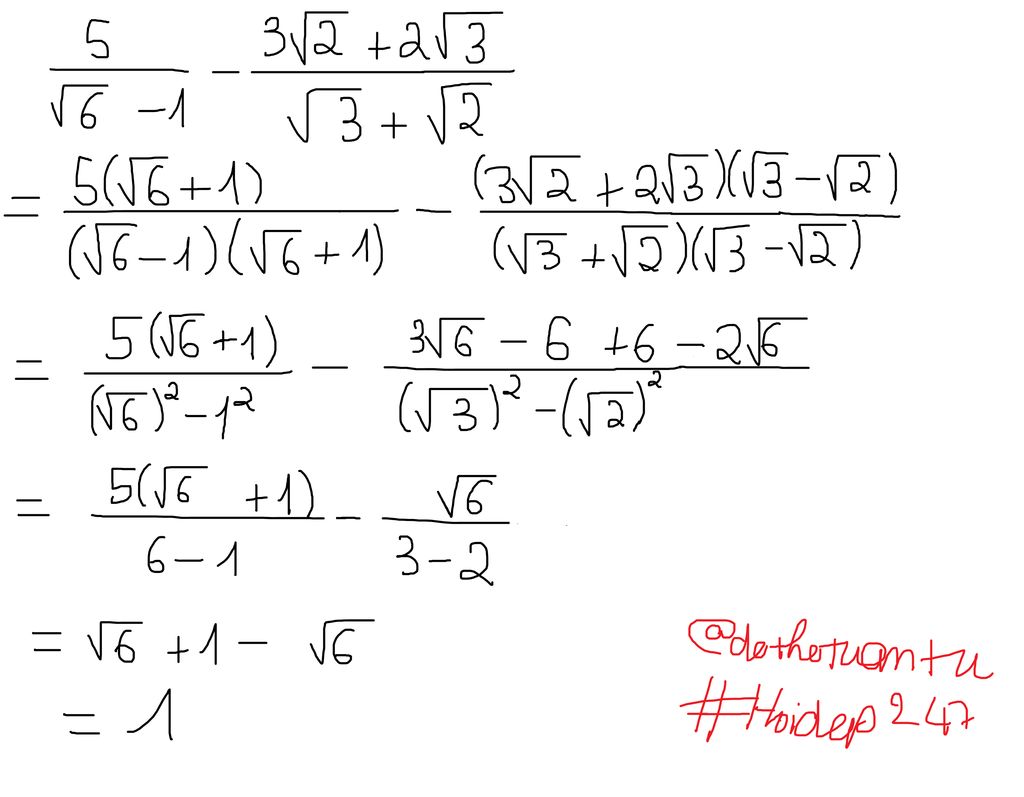 5/(√6 - 1) - (3√2 + 2√3)/(√3 + √2)
= 5(√6 + 1)/((√6 - 1)(√6 + 1)) - (3√2 + 2√3)(√3 - √2)/((√3 + √2)(√3 - √2))
= 5(√6 + 1)/((√6)² - 1²) - (3√6 - 6 + 6 - 2√6)/((√3)² - (√2)²)
= 5(√6 + 1)/(6 - 1) - √6/(3 - 2)
= √6 + 1 - √6
= 1
@dothotuantu
#Hoidap247